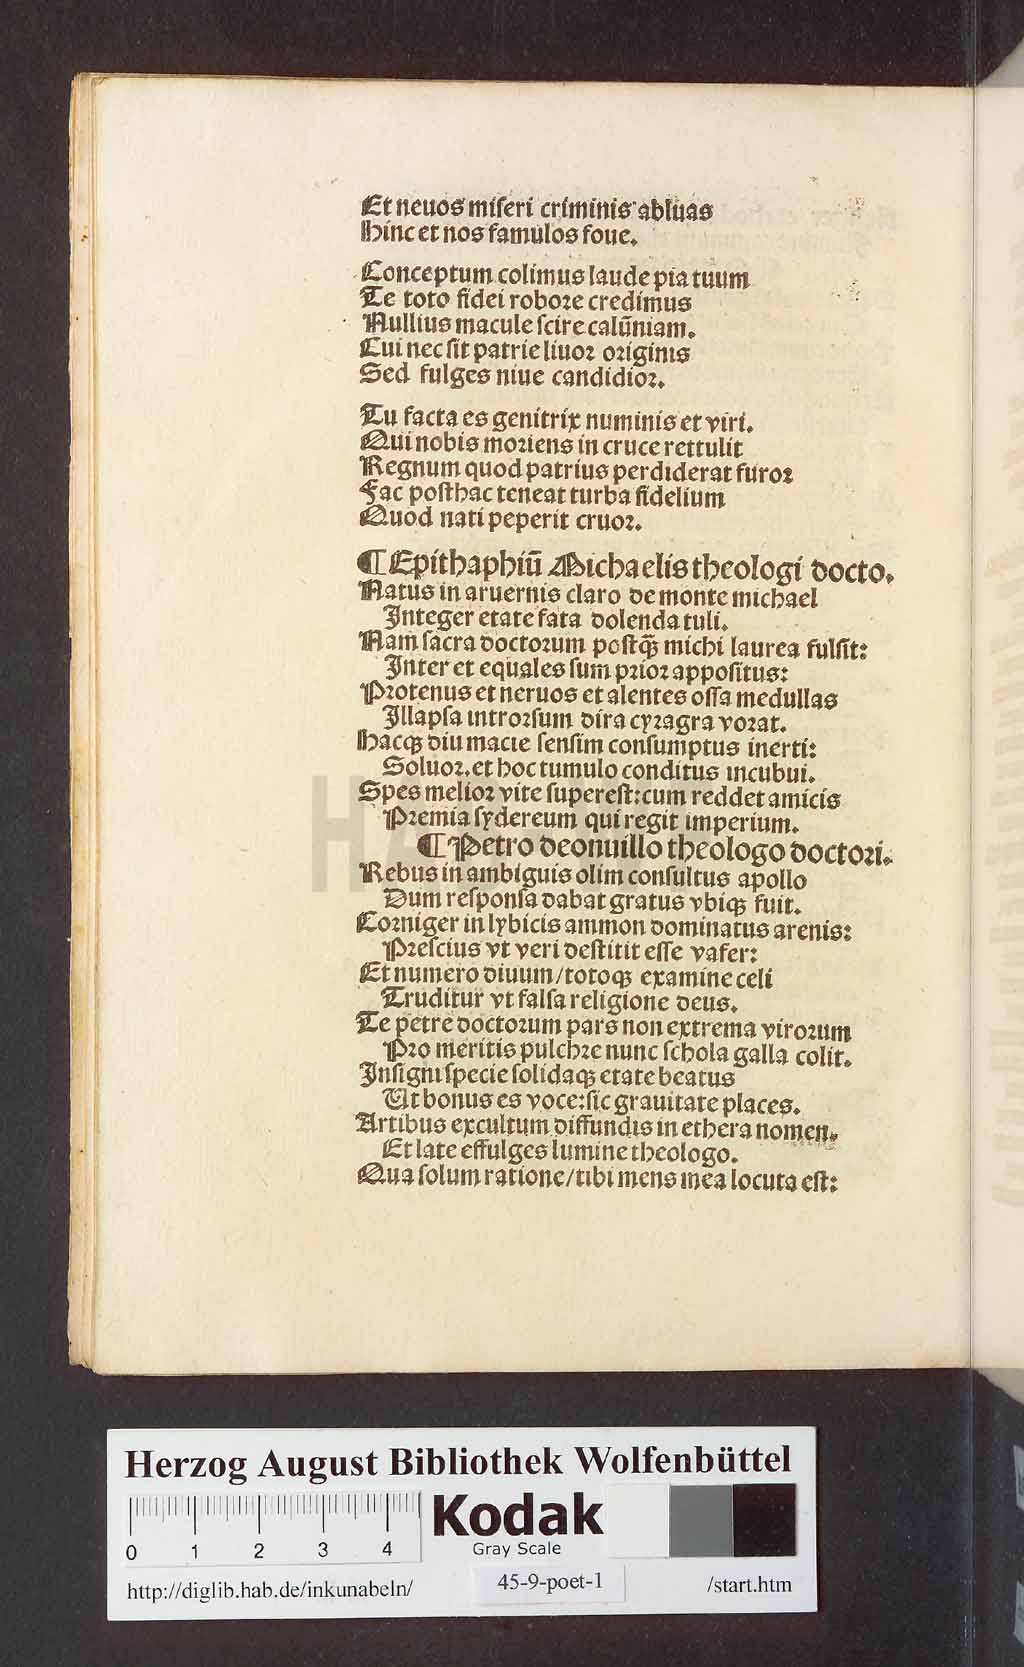 Et neuos miseri criminis abluas
Hinc et nos famulos foue.
Conceptum colimus laude pia tuum
Te toto fidei robore credimus
Nullius macule scire calūniam.
Cui nec sit patrie liuor originis
Sed fulges niue candidior.
Tu facta es genitrix numinis et viri.
Qui nobis moriens in cruce rettulit
Regnum quod patrius perdiderat furor
Fac posthac teneat turba fidelium
Quod nati peperit cruor.
¶ Epithaphiū Michaelis theologi docto.
Natus in aruernis claro de monte michael
Integer etate fata dolenda tuli.
Nam sacra doctorum postq̄ michi laurea fulsit:
Inter et equales sum prior appositus:
Protenus et neruos et alentes ossa medullas
Illapsa introrsum dira cyragra vorat.
Hacq; diu macie sensim consumptus inerti:
Soluor. et hoc tumulo conditus incubui.
Spes melior vite superest: cum reddet amicis
Premia sydereum qui regit imperium.
¶ Petro deonuillo theologo doctori.
Rebus in ambiguis olim consultus apollo
Dum responsa dabat gratus vbiq; fuit.
Corniger in lybicis ammon dominatus arenis:
Prescius vt veri destitit esse vafer:
Et numero diuum/totoq; examine celi
Truditur vt falsa religione deus.
Te petre doctorum pars non extrema virorum
Pro meritis pulchre nunc schola galla colit.
Insigni specie solidaq; etate beatus
Ut bonus es voce: sic grauitate places.
Artibus excultum diffundis in ethera nomen.
Et late effulges lumine theologo.
Qua solum ratione/tibi mens mea locuta est:
HAB
Herzog August Bibliothek Wolfenbüttel
0 1 2 3 4
Kodak
Gray Scale
http://diglib.hab.de/inkunabeln/ 45-9-poet-1 /start.htm